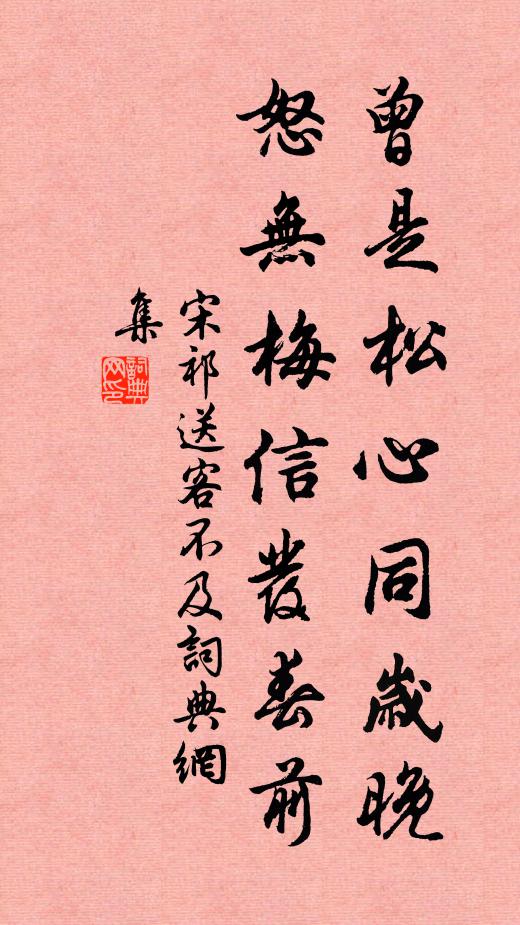 曾是松心同歲晚
怒無梅信發春前
宋祁送客不及詞典網
集
詞典網印